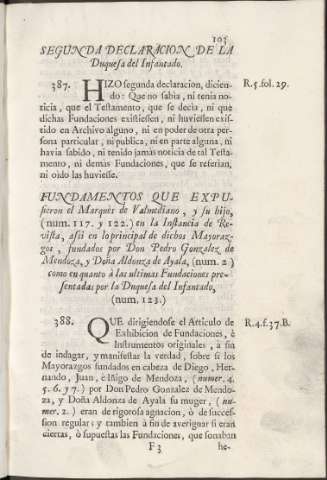 105
SEGUNDA DECLARACION DE LA
Duquesa del Infantado.
387. HIZO segunda declaracion, dicien- R.5.fol.29.
do: Que no sabia, ni tenia no-
ticia, que el Testamento, que se decia, ni que
dichas Fundaciones existiessen, ni huviessen exis-
tido en Archivo alguno, ni en poder de otra per-
sona particular, ni publica, ni en parte alguna, ni
havia sabido, ni tenido jamàs noticia de tal Testa-
mento, ni demàs Fundaciones, que se referian,
ni oido las huviesse.
FUNDAMENTOS QUE EXPU-
sieron el Marquès de Valmediano, y su hijo,
(num. 117. y 122.) en la Instancia de Re-
vista, assi en lo principal de dichos Mayoraz-
gos, fundados por Don Pedro Gonzalez de
Mendoza, y Doña Aldonza de Ayala, (num. 2)
como en quanto à las ultimas Fundaciones pre-
sentadas por la Duquesa del Infantado,
(num. 123.)
388. QUE dirigiendose el Articulo de R.4.f.37.B.
Exhibicion de Fundaciones, è
Instrumentos originales, à fin
de indagar, y manifestar la verdad, sobre si los
Mayorazgos fundados en cabeza de Diego, Her-
nando, Juan, è Iñigo de Mendoza, (numer. 4.
5. 6. y 7.) por Don Pedro Gonzalez de Mendo-
za, y Doña Aldonza de Ayala su muger, (nu-
mer. 2.) eran de rigorosa agnacion, ò de succes-
sion regular; y tambien à fin de averiguar si eran
ciertas, ò supuestas las Fundaciones, que sonaban
F 3 he-